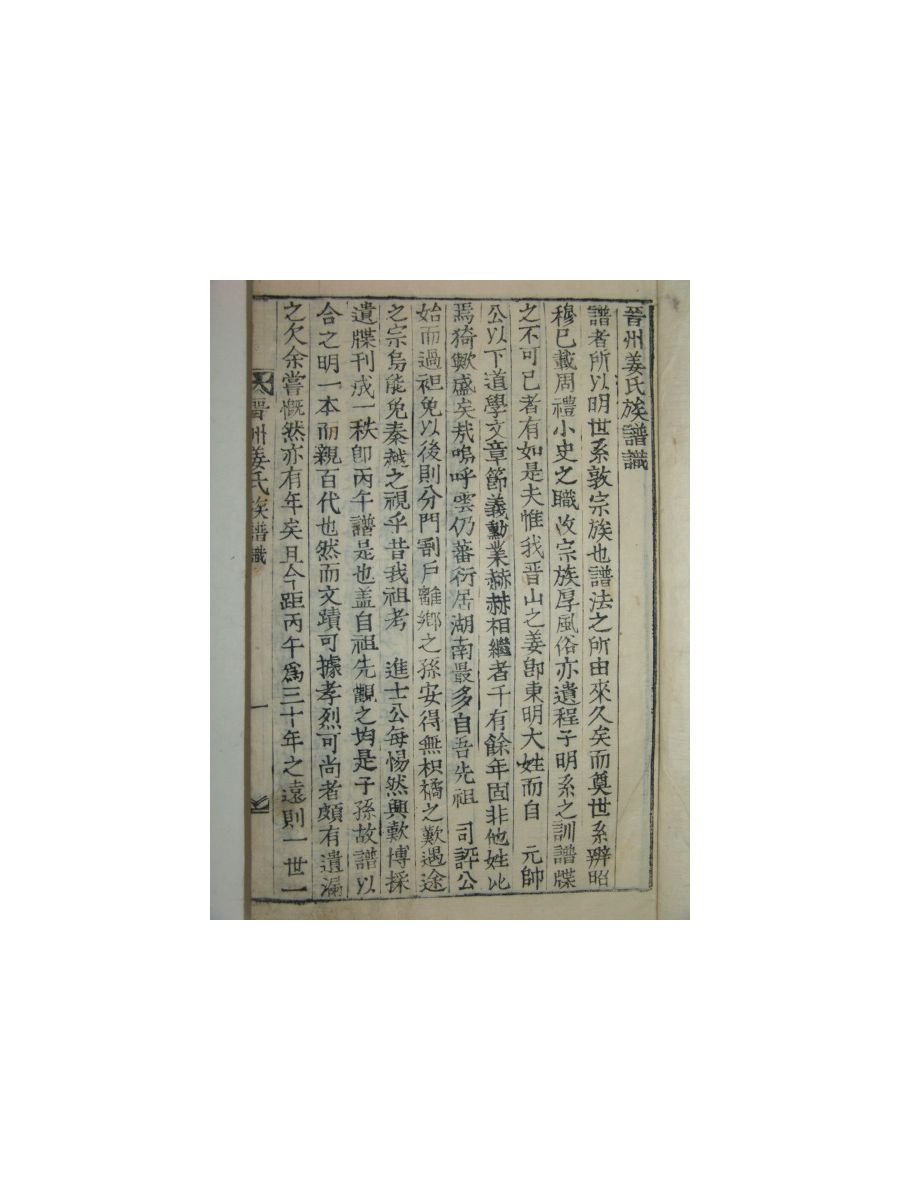 晉州姜氏族譜識
譜者所以明世系敦宗族也譜法之所由來久矣而奠世系辨昭
穆已載周禮小史之職收宗族厚風俗亦遺程子明系之訓譜牒
之不可已者有如是夫惟我晋山之姜卽東明大姓而自 元帥
公以下道學文章節義勳業赫赫相繼者千有餘年固非他姓比
焉猗歟盛矣哉嗚呼雲仍蕃衍居湖南最多自吾先祖 司評公
始而過袒免以後則分門割戶離鄉之孫安得無枳橘之歎遇途
之宗烏能免秦越之視乎昔我祖考 進士公每惕然興歎博採
遺牒刊成一秩卽丙午譜是也盖自祖先觀之均是子孫故譜以
合之明一本而親百代也然而文蹟可據孝烈可尚者頗有遺漏
之欠余嘗慨然亦有年矣且今距丙午爲三十年之遠則一世一
晋州姜氏族譜識 一